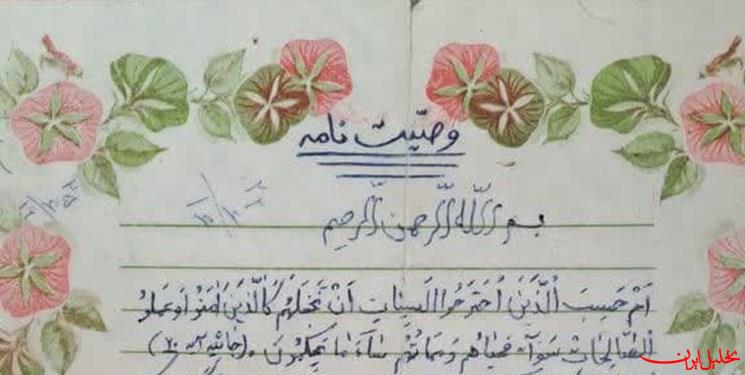 وصیّت نامه
بسم اللّه الرّحمن الرّحیم
اَمْ حَسِبَ الَّذینَ اجْتَرَحُوا السَّیِئاتِ اَنْ نَجْعَلَهُمْ کَالَّذینَ امَنُوا وَ عَمِلُو
الصّالِحاتِ سَوآءً مَحْیاهُم وَ مَماتُهُم سآءَ ما یَحْکُمُونَ (جاثیه آیه
تحلیل ایران